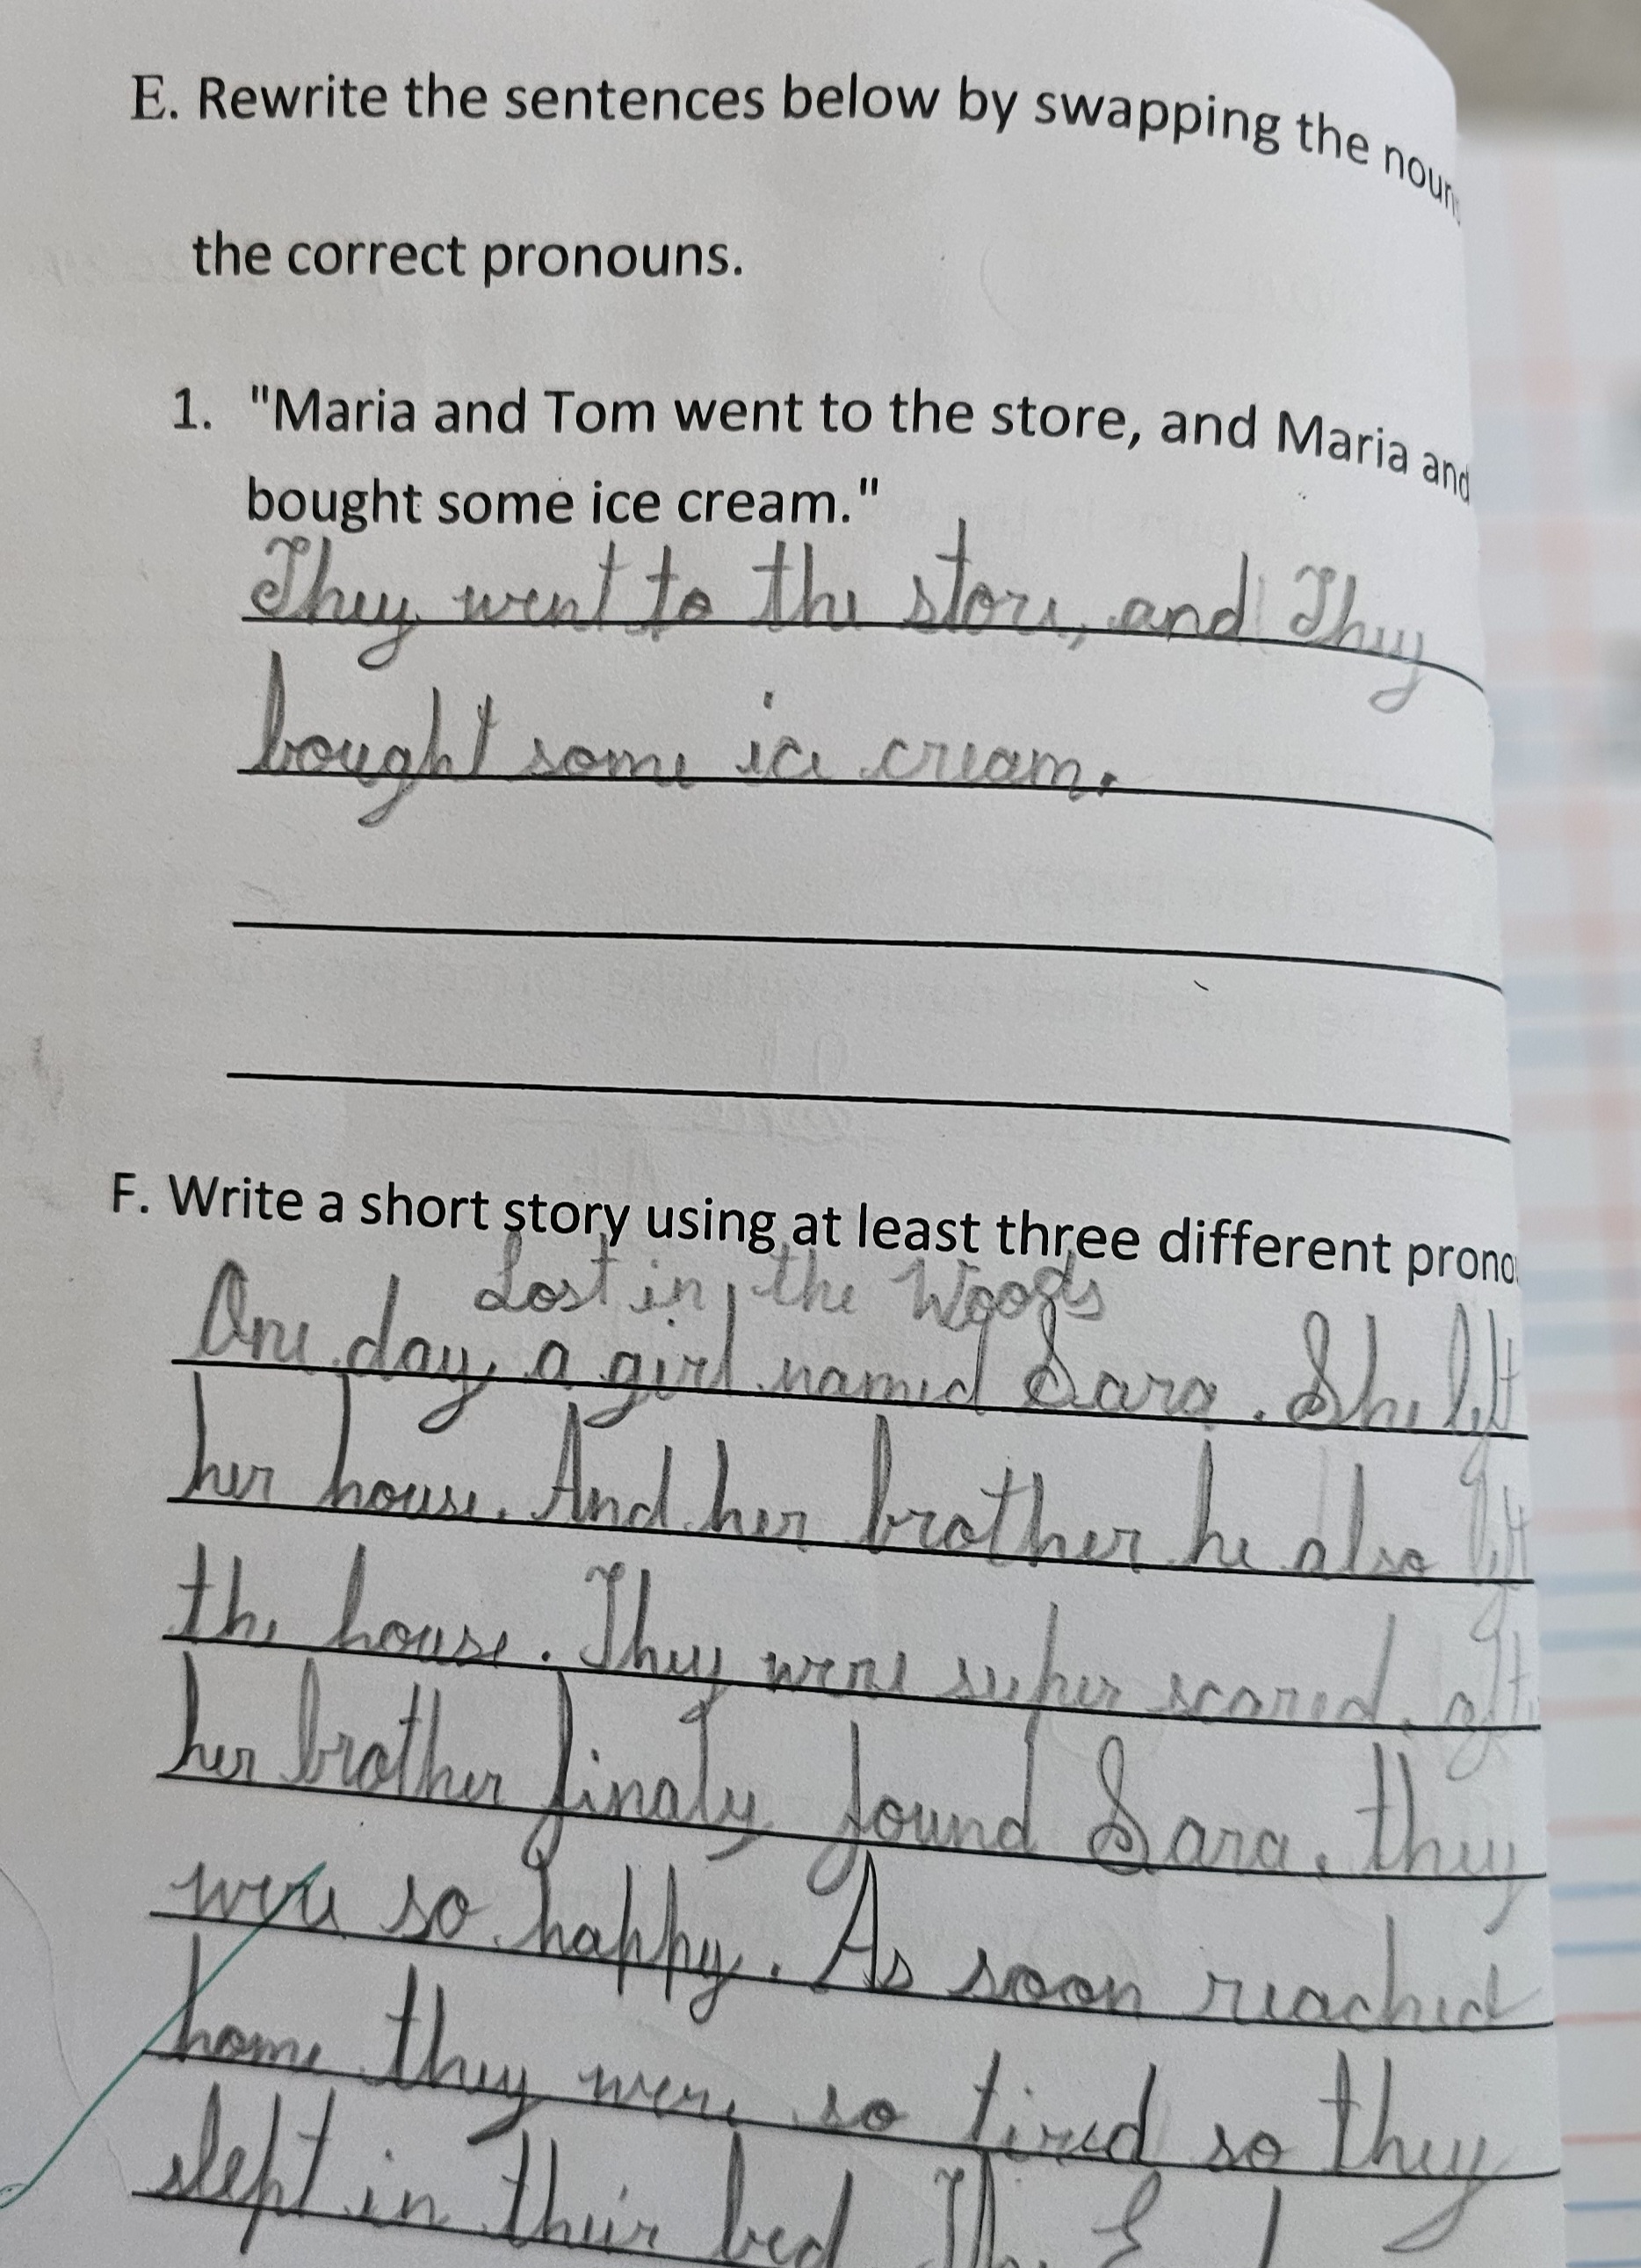 E. Rewrite the sentences below by swapping the
the correct pronouns.
1. "Maria and Tom went to the store, and Maria and
bought some ice cream."
They went to the store, and They
bought some ice cream.
F. Write a short story using at least three different
Lost in the Woods
One day, a girl named Sara. She left
her house. And her brother he also left
the house. They were super scared.
her brother finaly found Sara. they
were so happy. As soon reached
home they were so tired so they
slept in their bed. The End